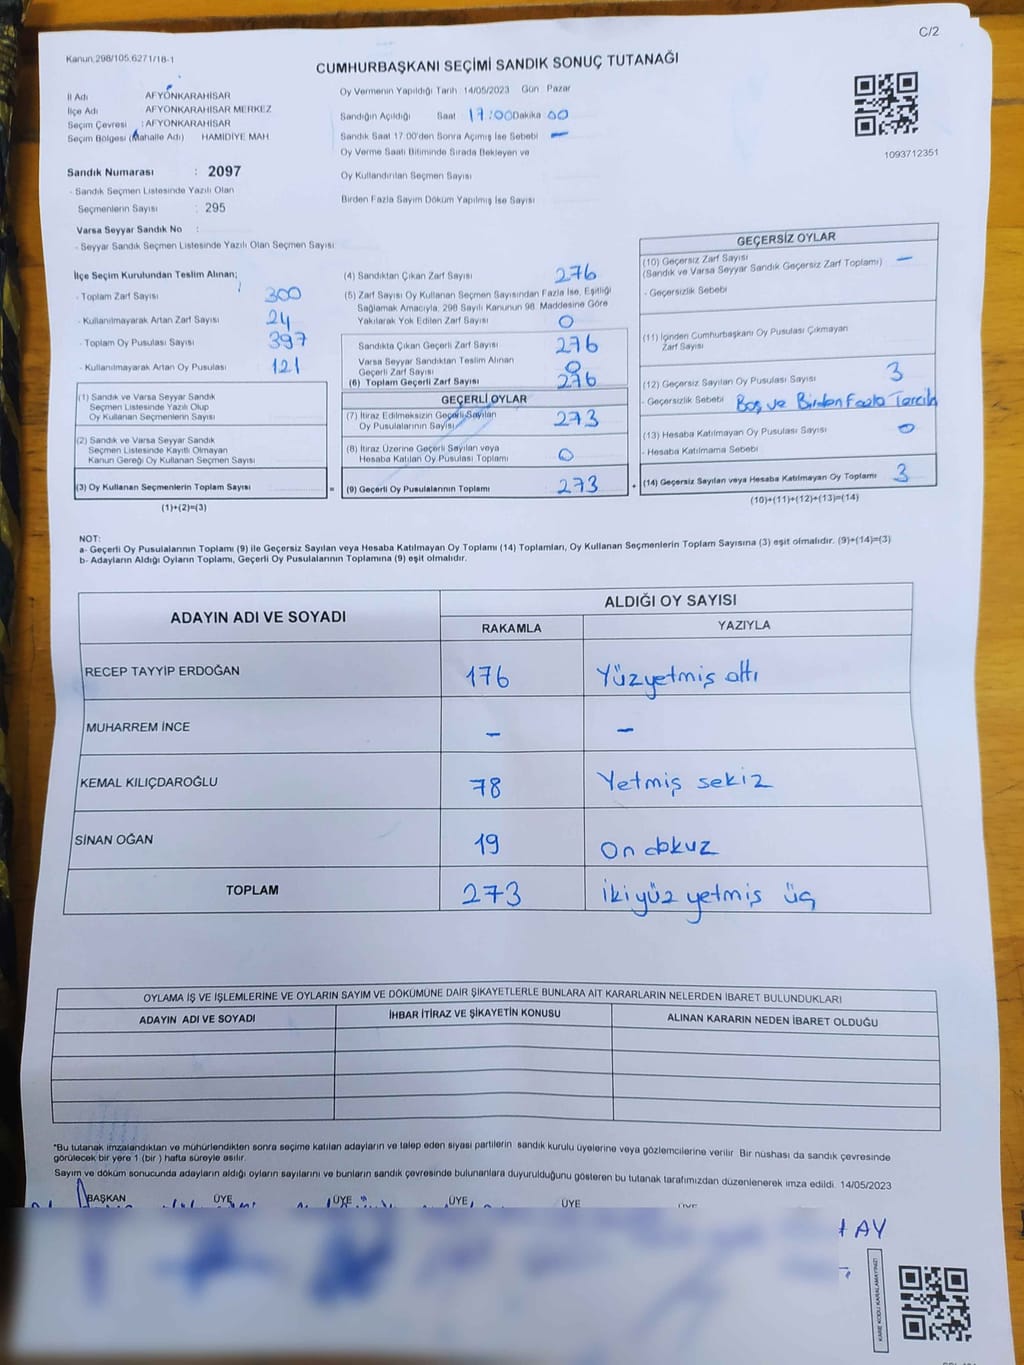 C/2
Kanun 298/105 6271/18-1
CUMHURBAŞKANI SEÇİMİ SANDIK SONUÇ TUTANAĞI
1093712351
İl Adı AFYONKARAHİSAR
İlçe Adı AFYONKARAHİSAR MERKEZ
Seçim Çevresi : AFYONKARAHİSAR
Seçim Bölgesi (Mahalle Adı) HAMİDİYE MAH
Sandık Numarası : 2097
- Sandık Seçmen Listesinde Yazılı Olan
Seçmenlerin Sayısı : 295
Varsa Seyyar Sandık No :
- Seyyar Sandık Seçmen Listesinde Yazılı Olan Seçmen Sayısı
Oy Vermenin Yapıldığı Tarih 14/05/2023 Gün Pazar
Sandığın Açıldığı Saat 17:00 Dakika 00
Sandık Saat 17.00'den Sonra Açımış İse Sebebi –
Oy Verme Saati Bitiminde Sırada Bekleyen ve
Oy Kullandırılan Seçmen Sayısı
Birden Fazla Sayım Döküm Yapılmış İse Sayısı
İlçe Seçim Kurulundan Teslim Alınan;
- Toplam Zarf Sayısı 300
- Kullanılmayarak Artan Zarf Sayısı 24
- Toplam Oy Pusulası Sayısı 397
- Kullanılmayarak Artan Oy Pusulası 121
(1) Sandık ve Varsa Seyyar Sandık
Seçmen Listesinde Yazılı Olup
Oy Kullanan Seçmenlerin Sayısı
(2) Sandık ve Varsa Seyyar Sandık
Seçmen Listesinde Kayıtlı Olmayan
Kanun Gereği Oy Kullanan Seçmen Sayısı
(3) Oy Kullanan Seçmenlerin Toplam Sayısı =
(1)+(2)=(3)
(4) Sandıktan Çıkan Zarf Sayısı 276
(5) Zarf Sayısı Oy Kullanan Seçmen Sayısından Fazla İse, Eşitliği
Sağlamak Amacıyla, 298 Sayılı Kanunun 98. Maddesine Göre
Yakılarak Yok Edilen Zarf Sayısı 0
Sandıkta Çıkan Geçerli Zarf Sayısı 276
Varsa Seyyar Sandıktan Teslim Alınan
Geçerli Zarf Sayısı 0
(6) Toplam Geçerli Zarf Sayısı 276
GEÇERLİ OYLAR
(7) İtiraz Edilmeksizin Geçerli Sayılan
Oy Pusulalarının Sayısı 273
(8) İtiraz Üzerine Geçerli Sayılan veya
Hesaba Katılan Oy Pusulası Toplamı 0
(9) Geçerli Oy Pusulalarının Toplamı 273 +
GEÇERSİZ OYLAR
(10) Geçersiz Zarf Sayısı
(Sandık ve Varsa Seyyar Sandık Geçersiz Zarf Toplamı) –
- Geçersizlik Sebebi
(11) İçinden Cumhurbaşkanı Oy Pusulası Çıkmayan
Zarf Sayısı
(12) Geçersiz Sayılan Oy Pusulası Sayısı 3
- Geçersizlik Sebebi Boş ve Birden Fazla Tercih
(13) Hesaba Katılmayan Oy Pusulası Sayısı 0
- Hesaba Katılmama Sebebi
(14) Geçersiz Sayılan veya Hesaba Katılmayan Oy Toplamı 3
(10)+(11)+(12)+(13)=(14)
NOT:
a- Geçerli Oy Pusulalarının Toplamı (9) ile Geçersiz Sayılan veya Hesaba Katılmayan Oy Toplamı (14) Toplamları, Oy Kullanan Seçmenlerin Toplam Sayısına (3) eşit olmalıdır. (9)+(14)=(3)
b- Adayların Aldığı Oyların Toplamı, Geçerli Oy Pusulalarının Toplamına (9) eşit olmalıdır.
ADAYIN ADI VE SOYADI
ALDIĞI OY SAYISI
RAKAMLA YAZIYLA
RECEP TAYYİP ERDOĞAN 176 Yüzyetmiş altı
MUHARREM İNCE – –
KEMAL KILIÇDAROĞLU 78 Yetmiş sekiz
SİNAN OĞAN 19 On dokuz
TOPLAM 273 İkiyüz yetmiş üç
OYLAMA İŞ VE İŞLEMLERİNE VE OYLARIN SAYIM VE DÖKÜMÜNE DAİR ŞİKAYETLERLE BUNLARA AİT KARARLARIN NELERDEN İBARET BULUNDUKLARI
ADAYIN ADI VE SOYADI İHBAR İTİRAZ VE ŞİKAYETİN KONUSU ALINAN KARARIN NEDEN İBARET OLDUĞU
*Bu tutanak imzalandıktan ve mühürlendikten sonra seçime katılan adayların ve talep eden siyasi partilerin sandık kurulu üyelerine veya gözlemcilerine verilir. Bir nüshası da sandık çevresinde
görülecek bir yere 1 (bir ) hafta süreyle asılır.
Sayım ve döküm sonucunda adayların aldığı oyların sayılarını ve bunların sandık çevresinde bulunanlara duyurulduğunu gösteren bu tutanak tarafımızdan düzenlenerek imza edildi. 14/05/2023
BAŞKAN ÜYE ÜYE ÜYE ÜYE ÜYE
AY
KARE KODU KARALAMAYINIZ!